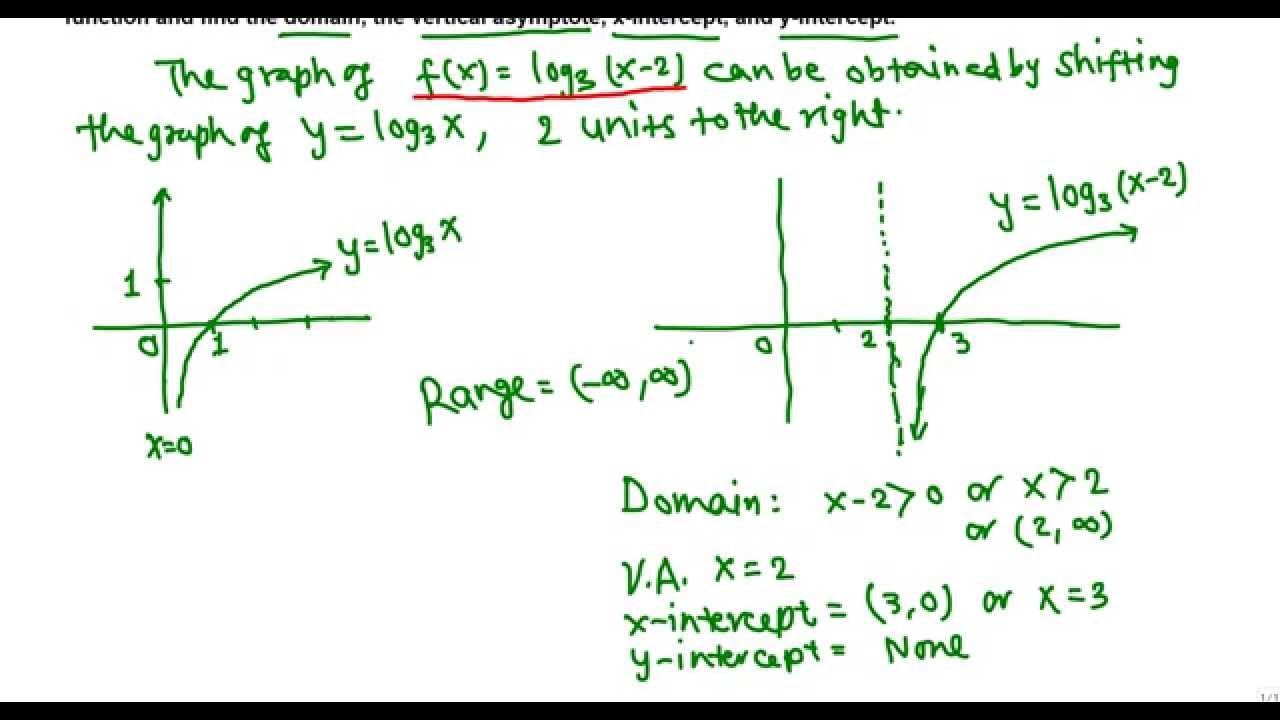 function and find the domain, the vertical asymptote, x-intercept, and y-intercept.
The graph of f(x) = log₃(x-2) can be obtained by shifting
the graph of y = log₃x, 2 units to the right.
y = log₃x
1
0 1
x=0
y = log₃(x-2)
0 2 3
Range = (-∞, ∞)
Domain: x-2>0 or x>2
or (2, ∞)
V.A. x=2
x-intercept = (3,0) or x=3
y-intercept = None
1/1